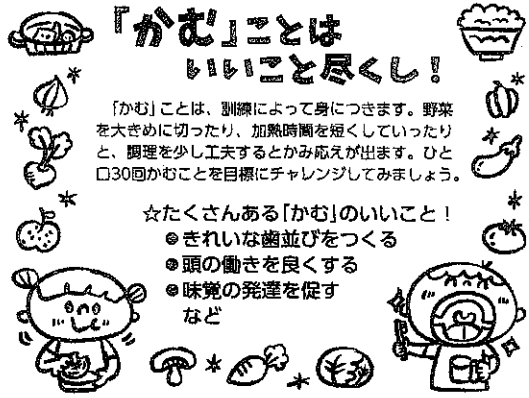 「かむ」ことは
いいこと尽くし！
「かむ」ことは、訓練によって身につきます。野菜
を大きめに切ったり、加熱時間を短くしていったり
と、調理を少し工夫するとかみ応えが出ます。ひと
口30回かむことを目標にチャレンジしてみましょう。
☆たくさんある「かむ」のいいこと！
◎きれいな歯並びをつくる
◎頭の働きを良くする
◎味覚の発達を促す
など